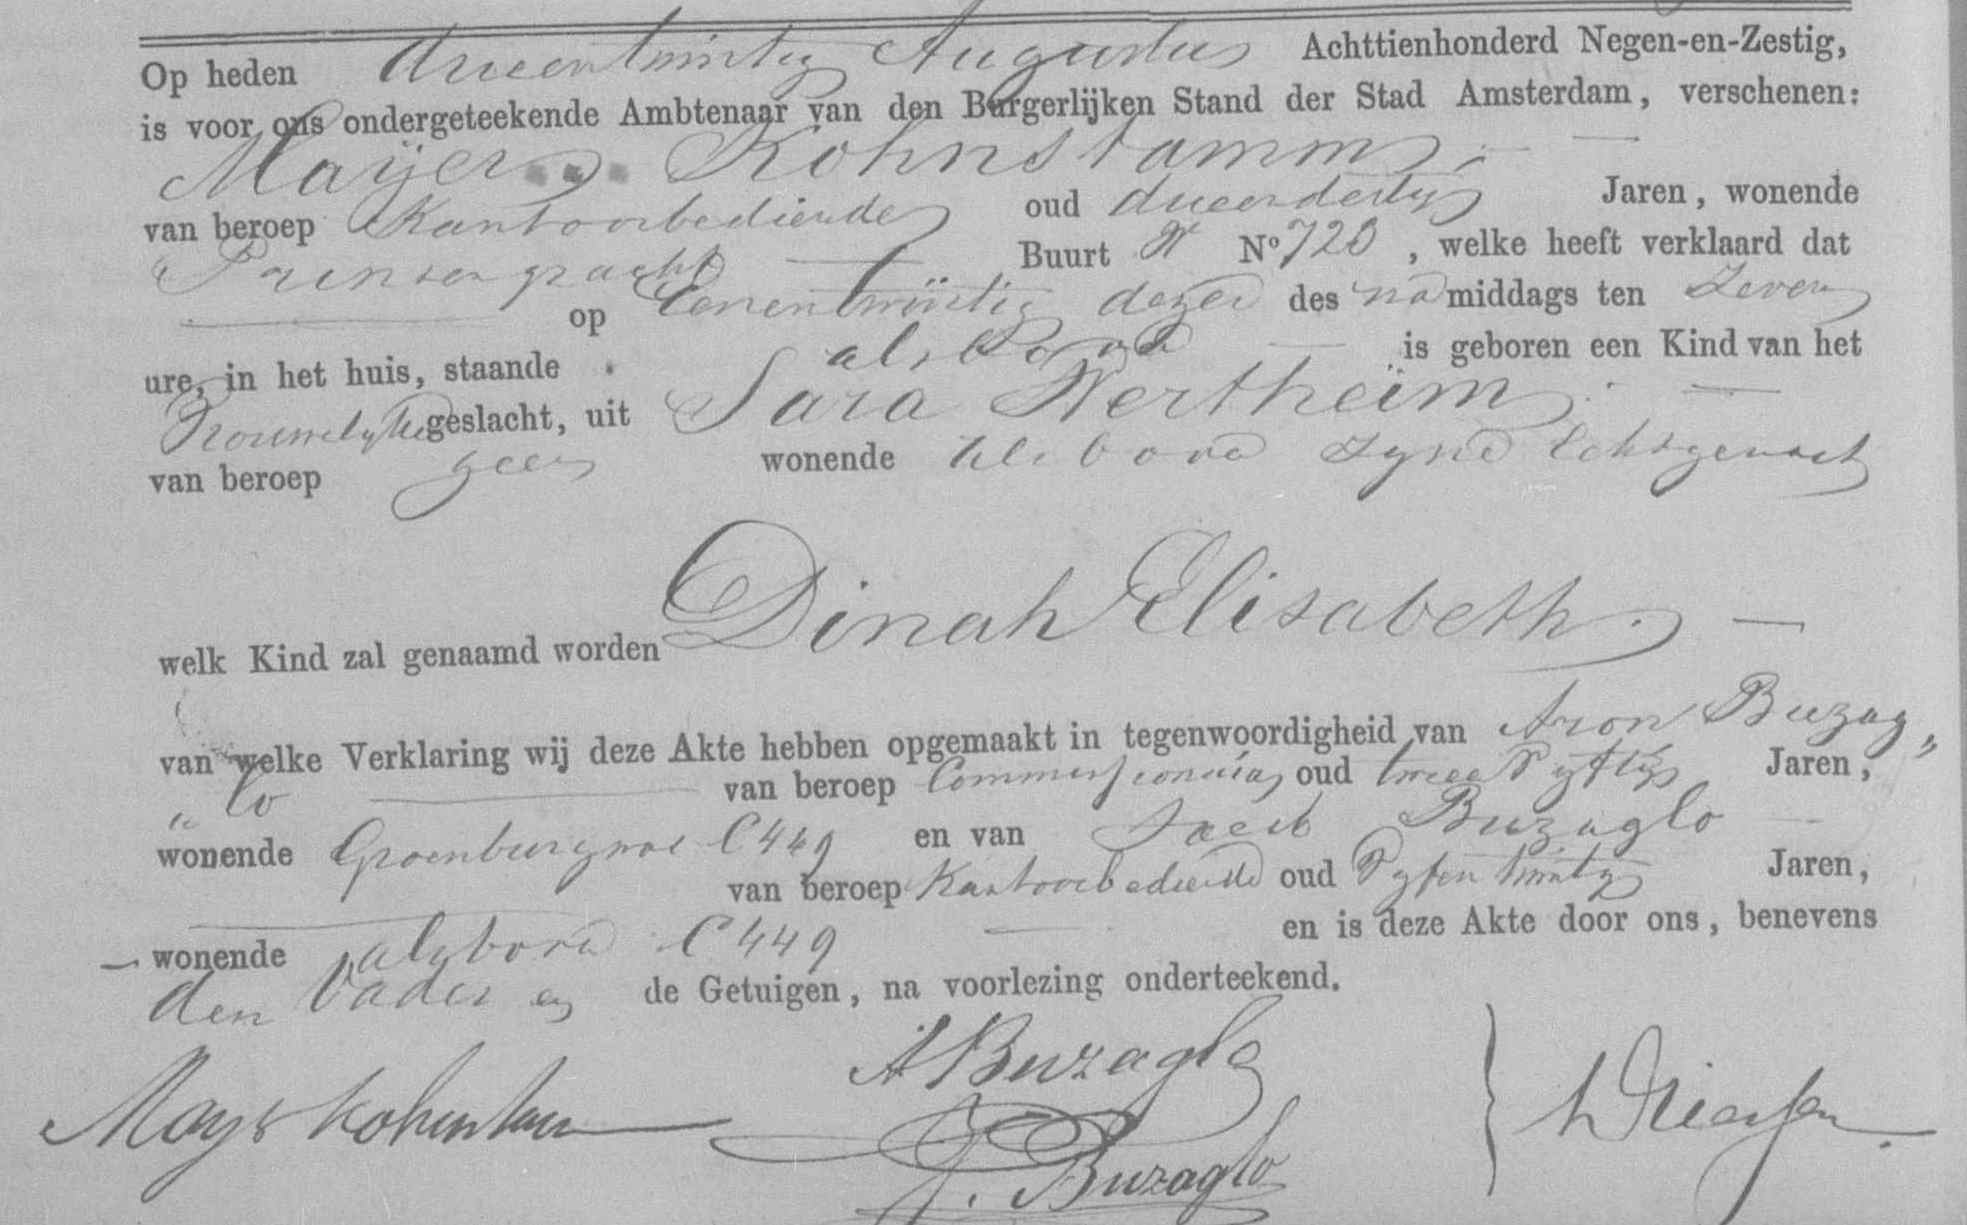 Op heden drieentwintig Augustus Achttienhonderd Negen-en-Zestig,
is voor ons ondergeteekende Ambtenaar van den Burgerlijken Stand der Stad Amsterdam, verschenen:
Mayer Kohnstamm
van beroep Kantoorbediende oud drieendertig Jaren, wonende
Prinsengracht Buurt N° 720, welke heeft verklaard dat
op Eenentwintig dezer des na middags ten Zeven
ure, in het huis, staande alsboven is geboren een Kind van het
Vrouwelijke geslacht, uit Sara Wertheim
van beroep geen wonende alsboven zijne Echtgenoot
welk Kind zal genaamd worden Dinah Elisabeth
van welke Verklaring wij deze Akte hebben opgemaakt in tegenwoordigheid van Aron Buzag„
„lo van beroep Commissionair oud twee Jaren,
wonende Groenburgwal C449 en van Buzaglo
van beroep Kantoorbediende oud Vyfentwintig Jaren,
wonende alsboven C449 en is deze Akte door ons, benevens
den Vader en de Getuigen, na voorlezing onderteekend.
A Buzaglo
J. Buzaglo